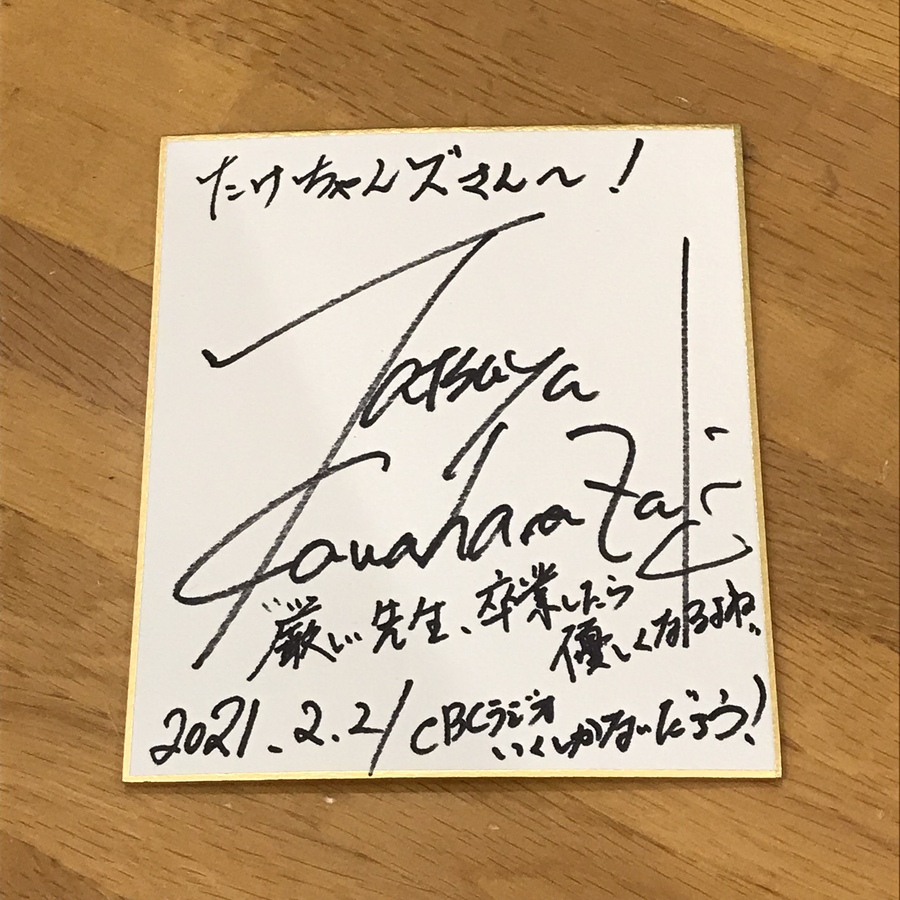 たけちゃんズさんへ!
Tatsuya
Kawahara
厳しい先生、卒業したら
優しくなるよね
2021.2.21
CBCラジオ
いくしかないだろう!